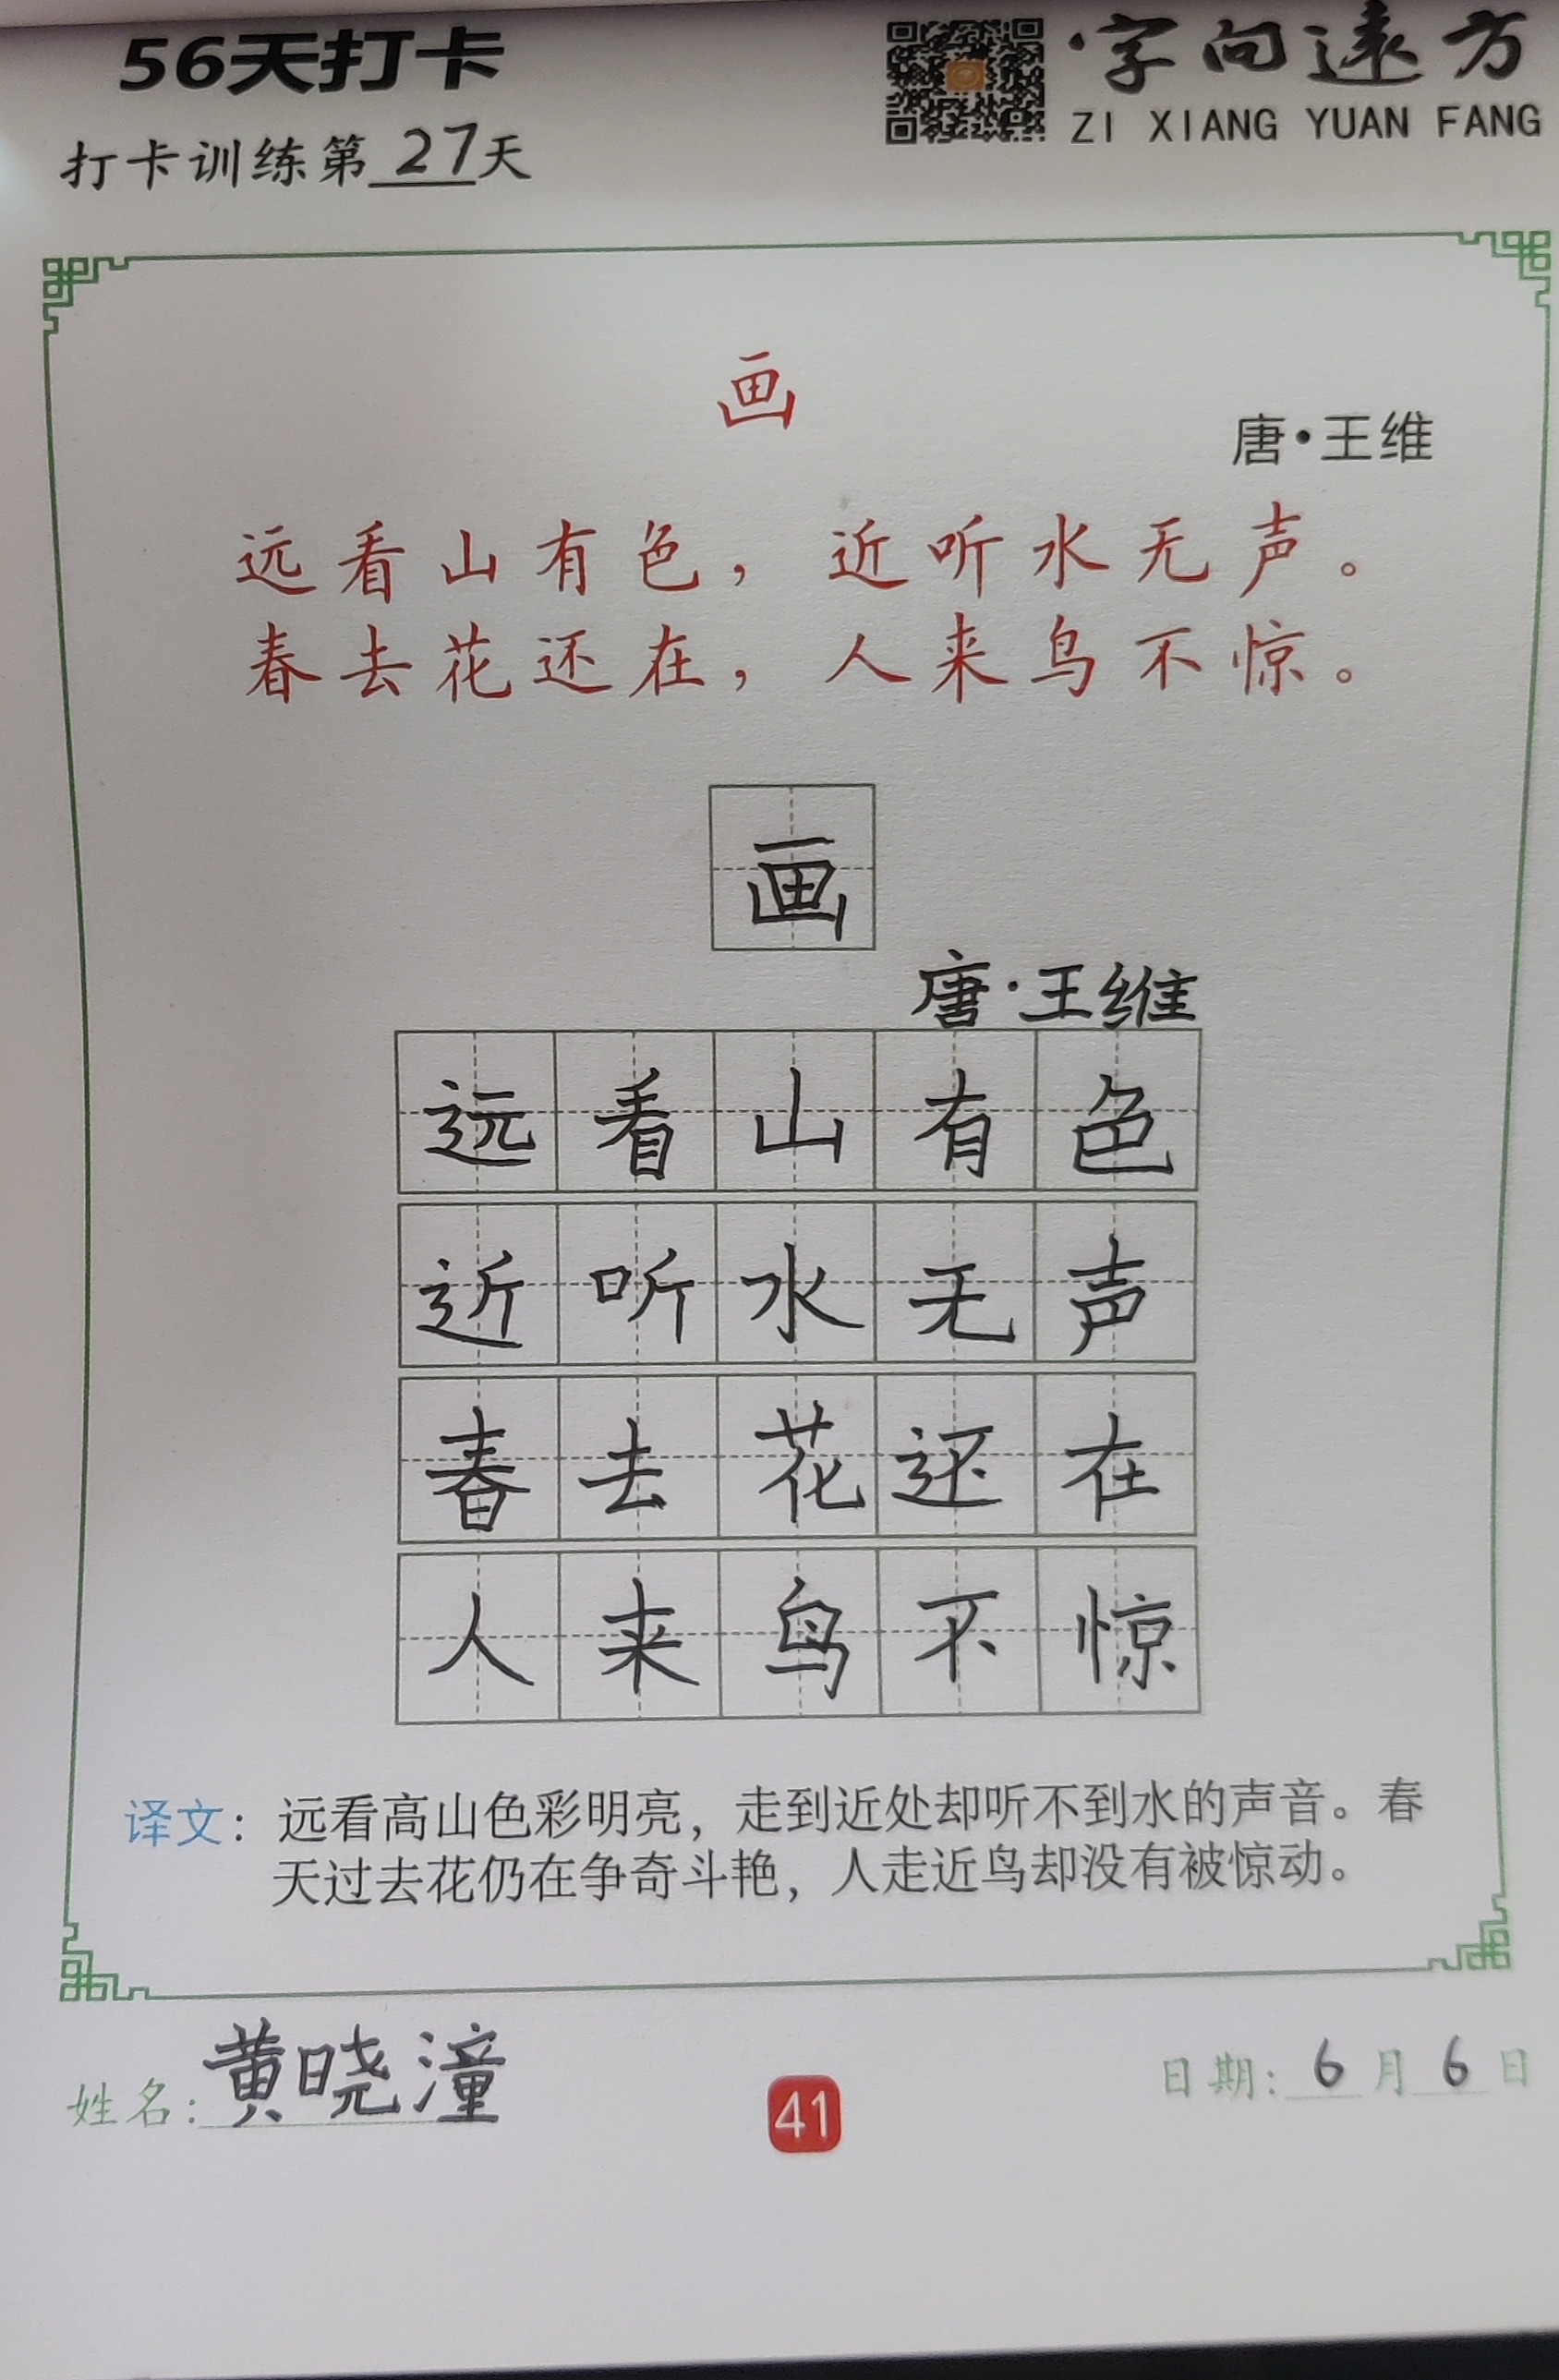 56天打卡
·字向遠方
ZI XIANG YUAN FANG
打卡训练第27天
画
唐·王维
远看山有色，近听水无声。
春去花还在，人来鸟不惊。
画
唐·王维
远看山有色
近听水无声
春去花还在
人来鸟不惊
译文：远看高山色彩明亮，走到近处却听不到水的声音。春
天过去花仍在争奇斗艳，人走近鸟却没有被惊动。
姓名：黄晓潼
41
日期：6月6日